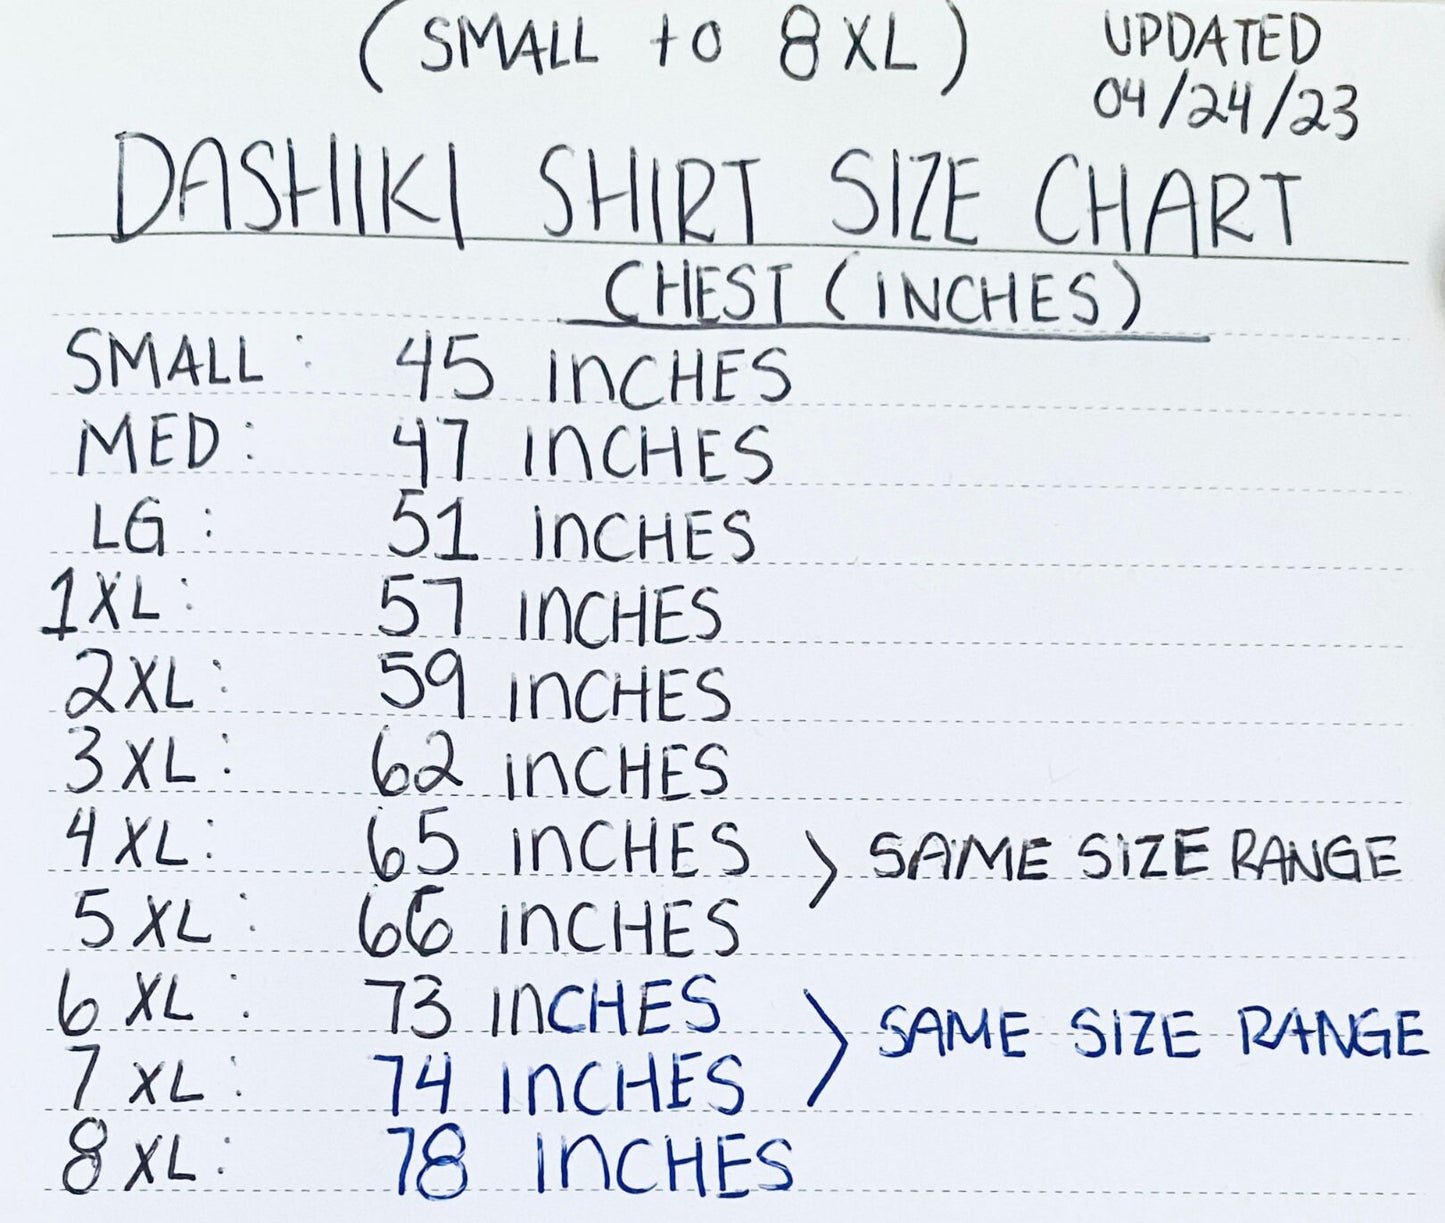 (SMALL to 8XL)
UPDATED
04/24/23
DASHIKI SHIRT SIZE CHART
CHEST (INCHES)
SMALL: 45 INCHES
MED: 47 INCHES
LG: 51 INCHES
1XL: 57 INCHES
2XL: 59 INCHES
3XL: 62 INCHES
4XL: 65 INCHES > SAME SIZE RANGE
5XL: 66 INCHES
6XL: 73 INCHES > SAME SIZE RANGE
7XL: 74 INCHES
8XL: 78 INCHES